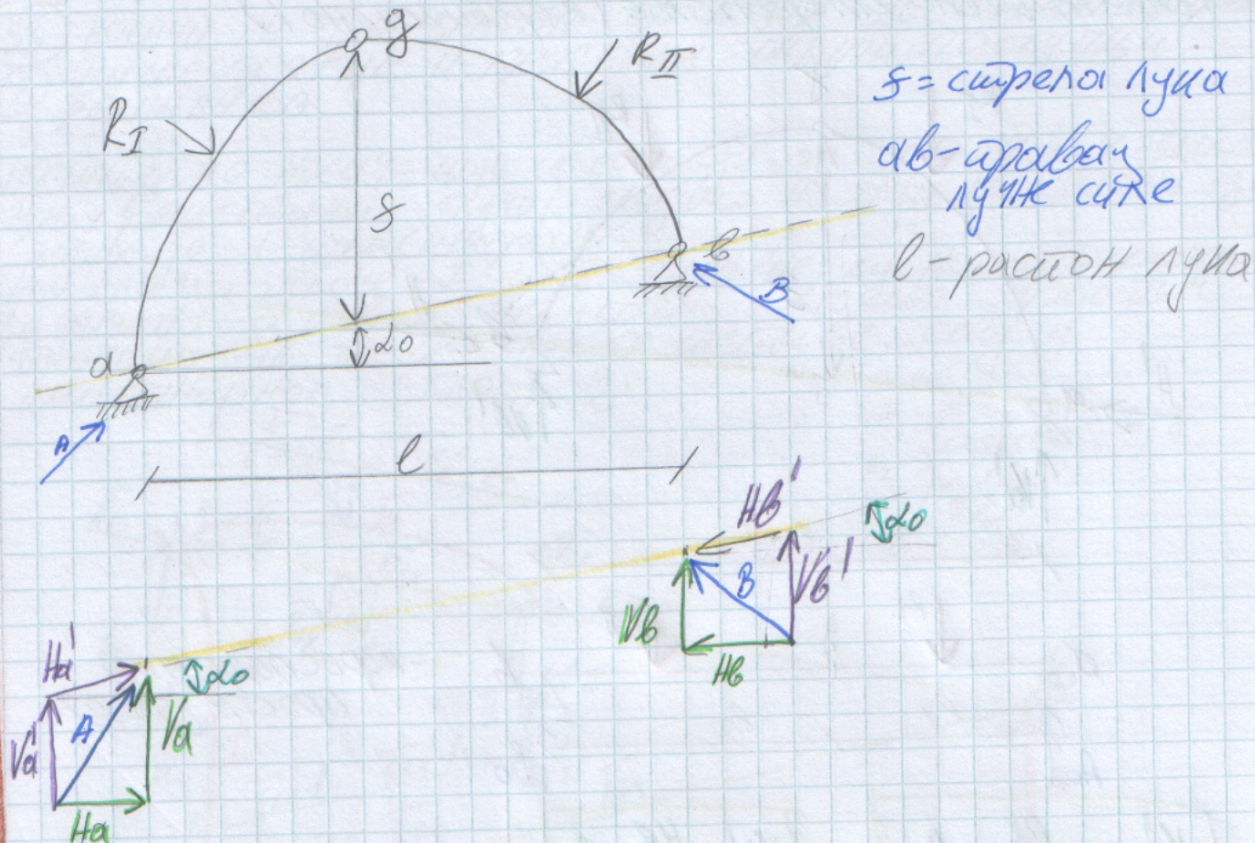 g
R II
R I
f = стрела лука
ав - правац
лучне силе
l - распон лука
f
в
B
a
α0
A
l
Hв'
α0
B
Vв'
Vв
Hв
Ha'
α0
A
Va
Va'
Ha